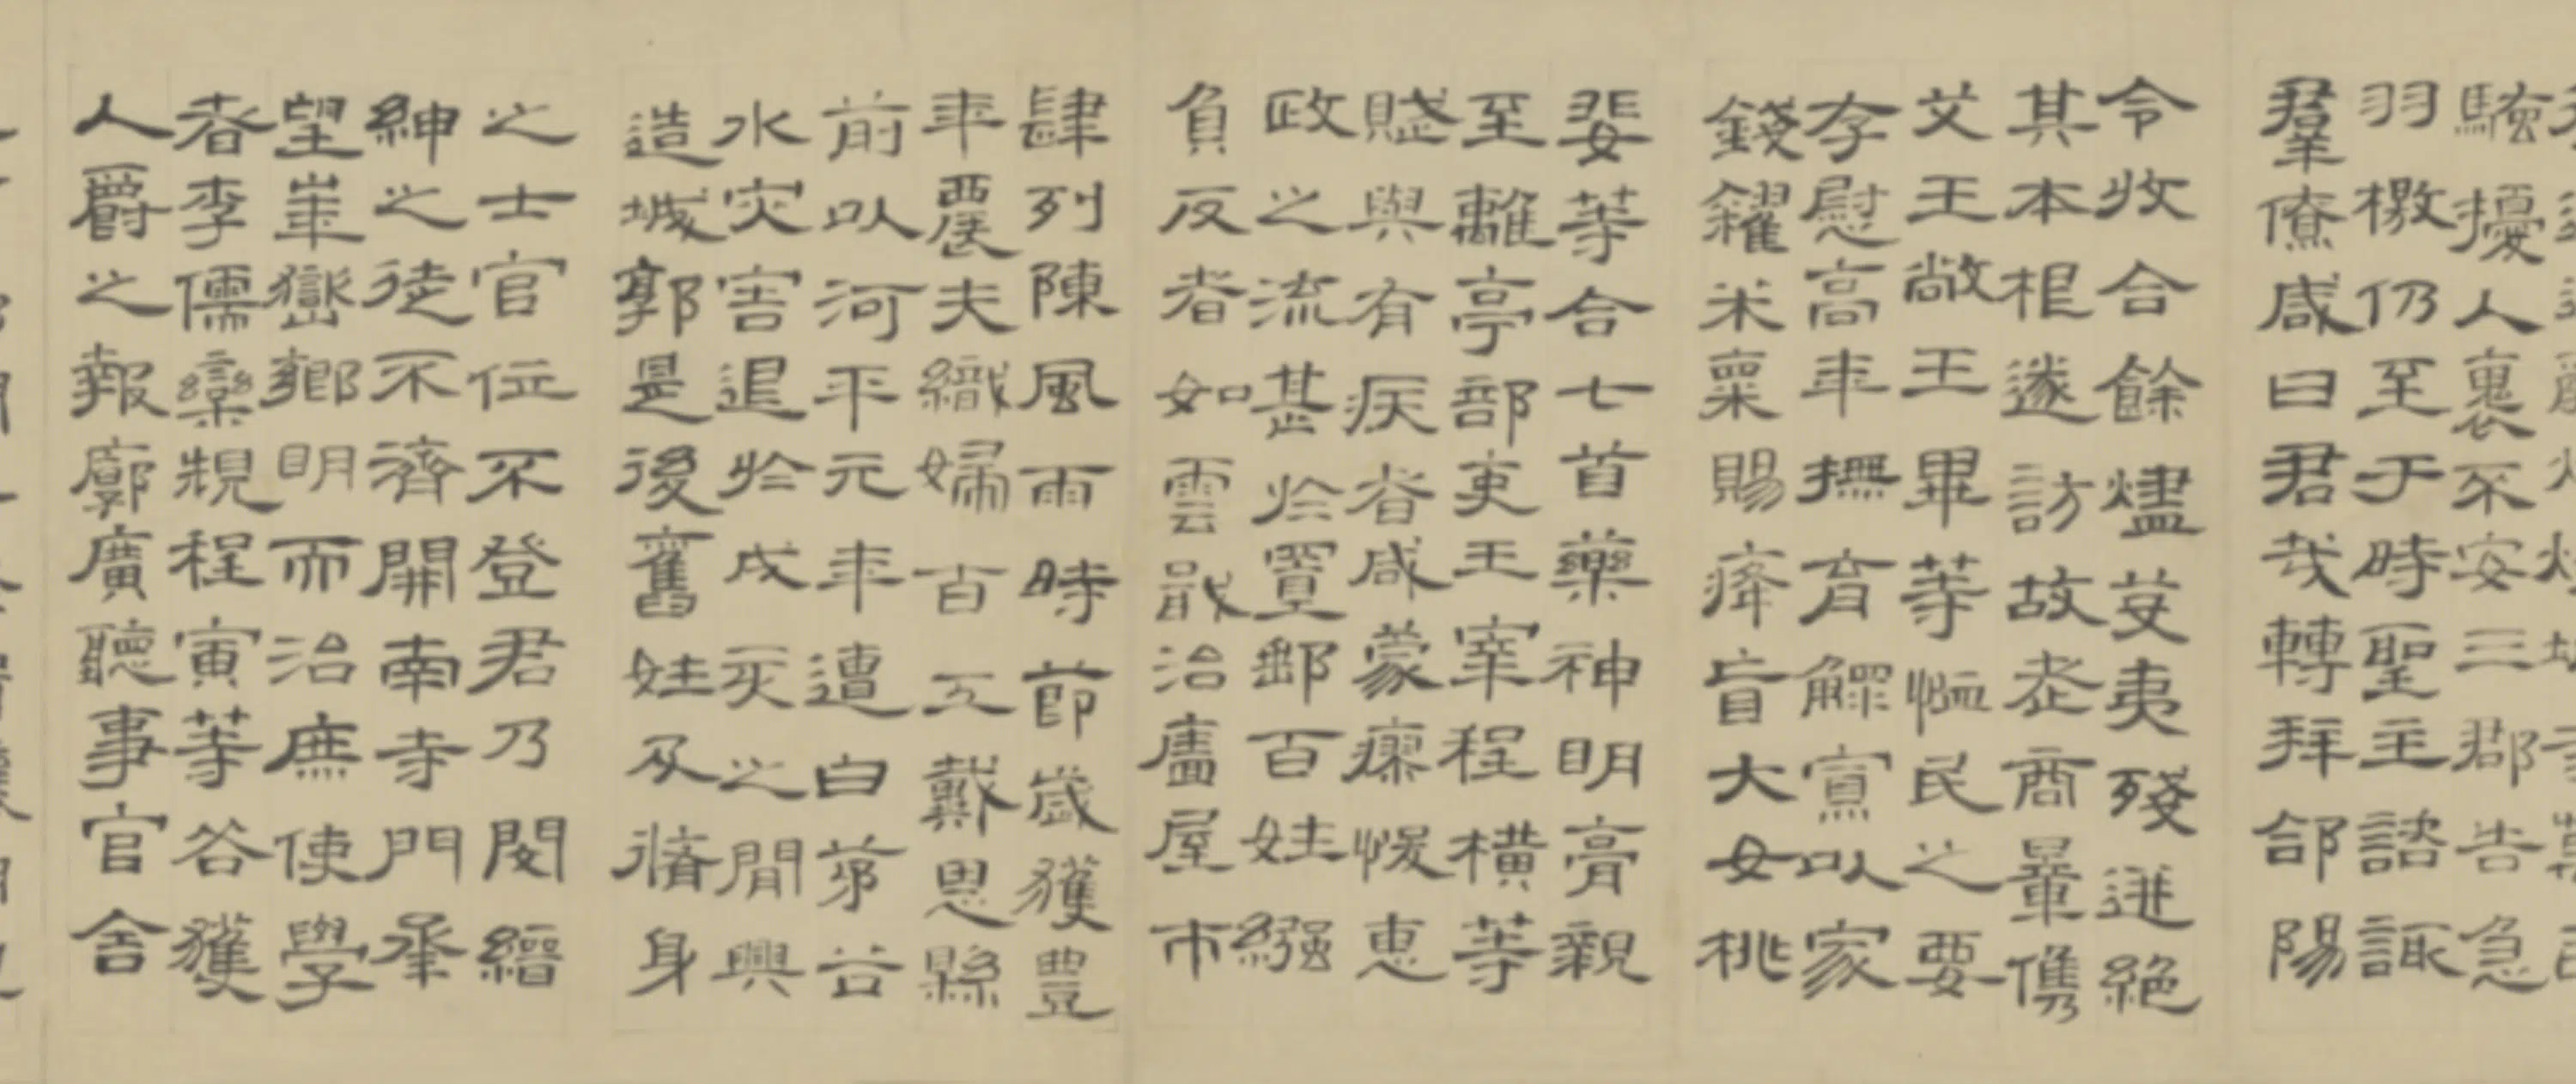 騷擾人裏不安三郡告急
羽檄仍至于時聖主諮諏
羣僚咸曰君哉轉拜郃陽
令收合餘燼芟夷殘迸絕
其本根遂訪故老商量儁
艾王敞王畢等恤民之要
存慰高年撫育鰥寡以家
錢糴米粟賜癃盲大女桃
婓等合七首藥神明膏親
至離亭部吏王宰程橫等
賦與有疾者咸蒙瘳悛惠
政之流甚於置郵百姓繈
負反者如雲戢治廬屋市
肆列陳風雨時節歲獲豐
年農夫織婦百工戴恩縣
前以河平元年遭白茅谷
水災害退於戌亥之間興
造城郭是後舊姓及脩身
之士官位不登君乃閔縉
紳之徒不濟開南寺門承
望華嶽鄉明而治庶使學
者李儒欒規程寅等各獲
人爵之報廓廣聽事官舍